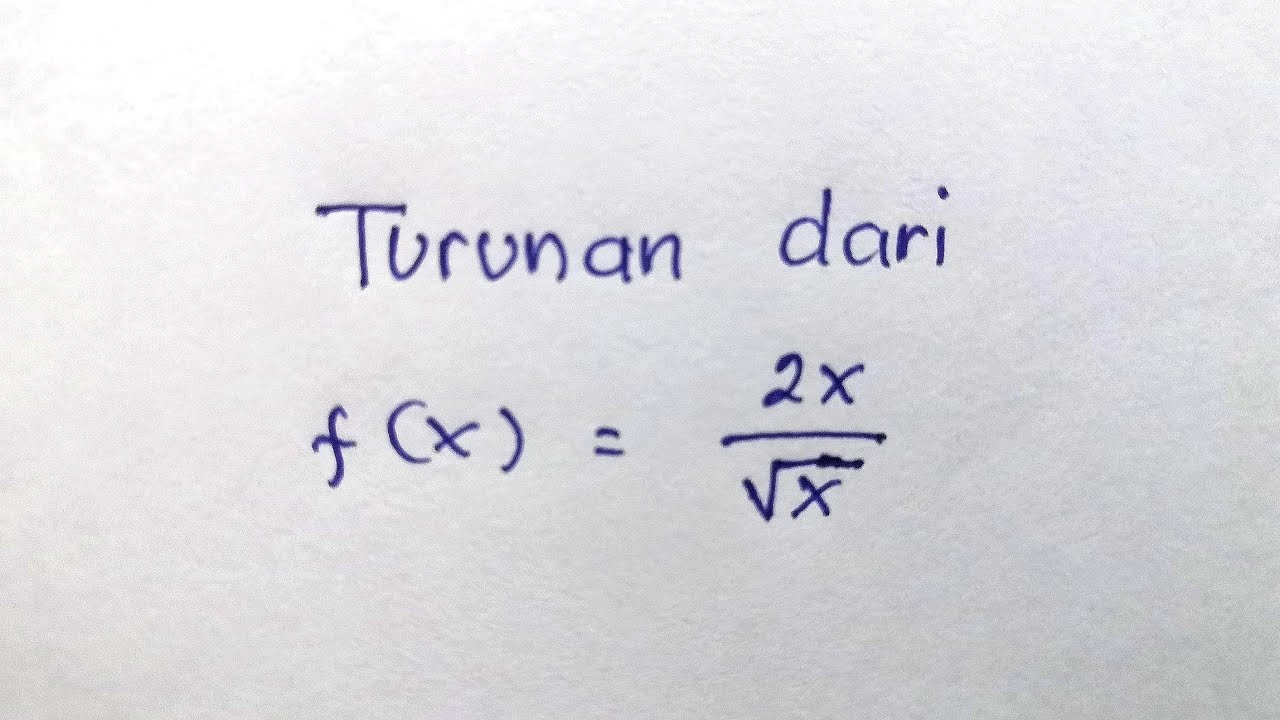 Turunan dari
f(x) = 2x/√x